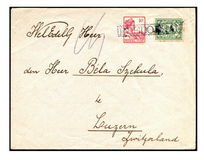 WelEdele Heer
den Heer Béla Szekula,
te
Luzern
Zwitzerland